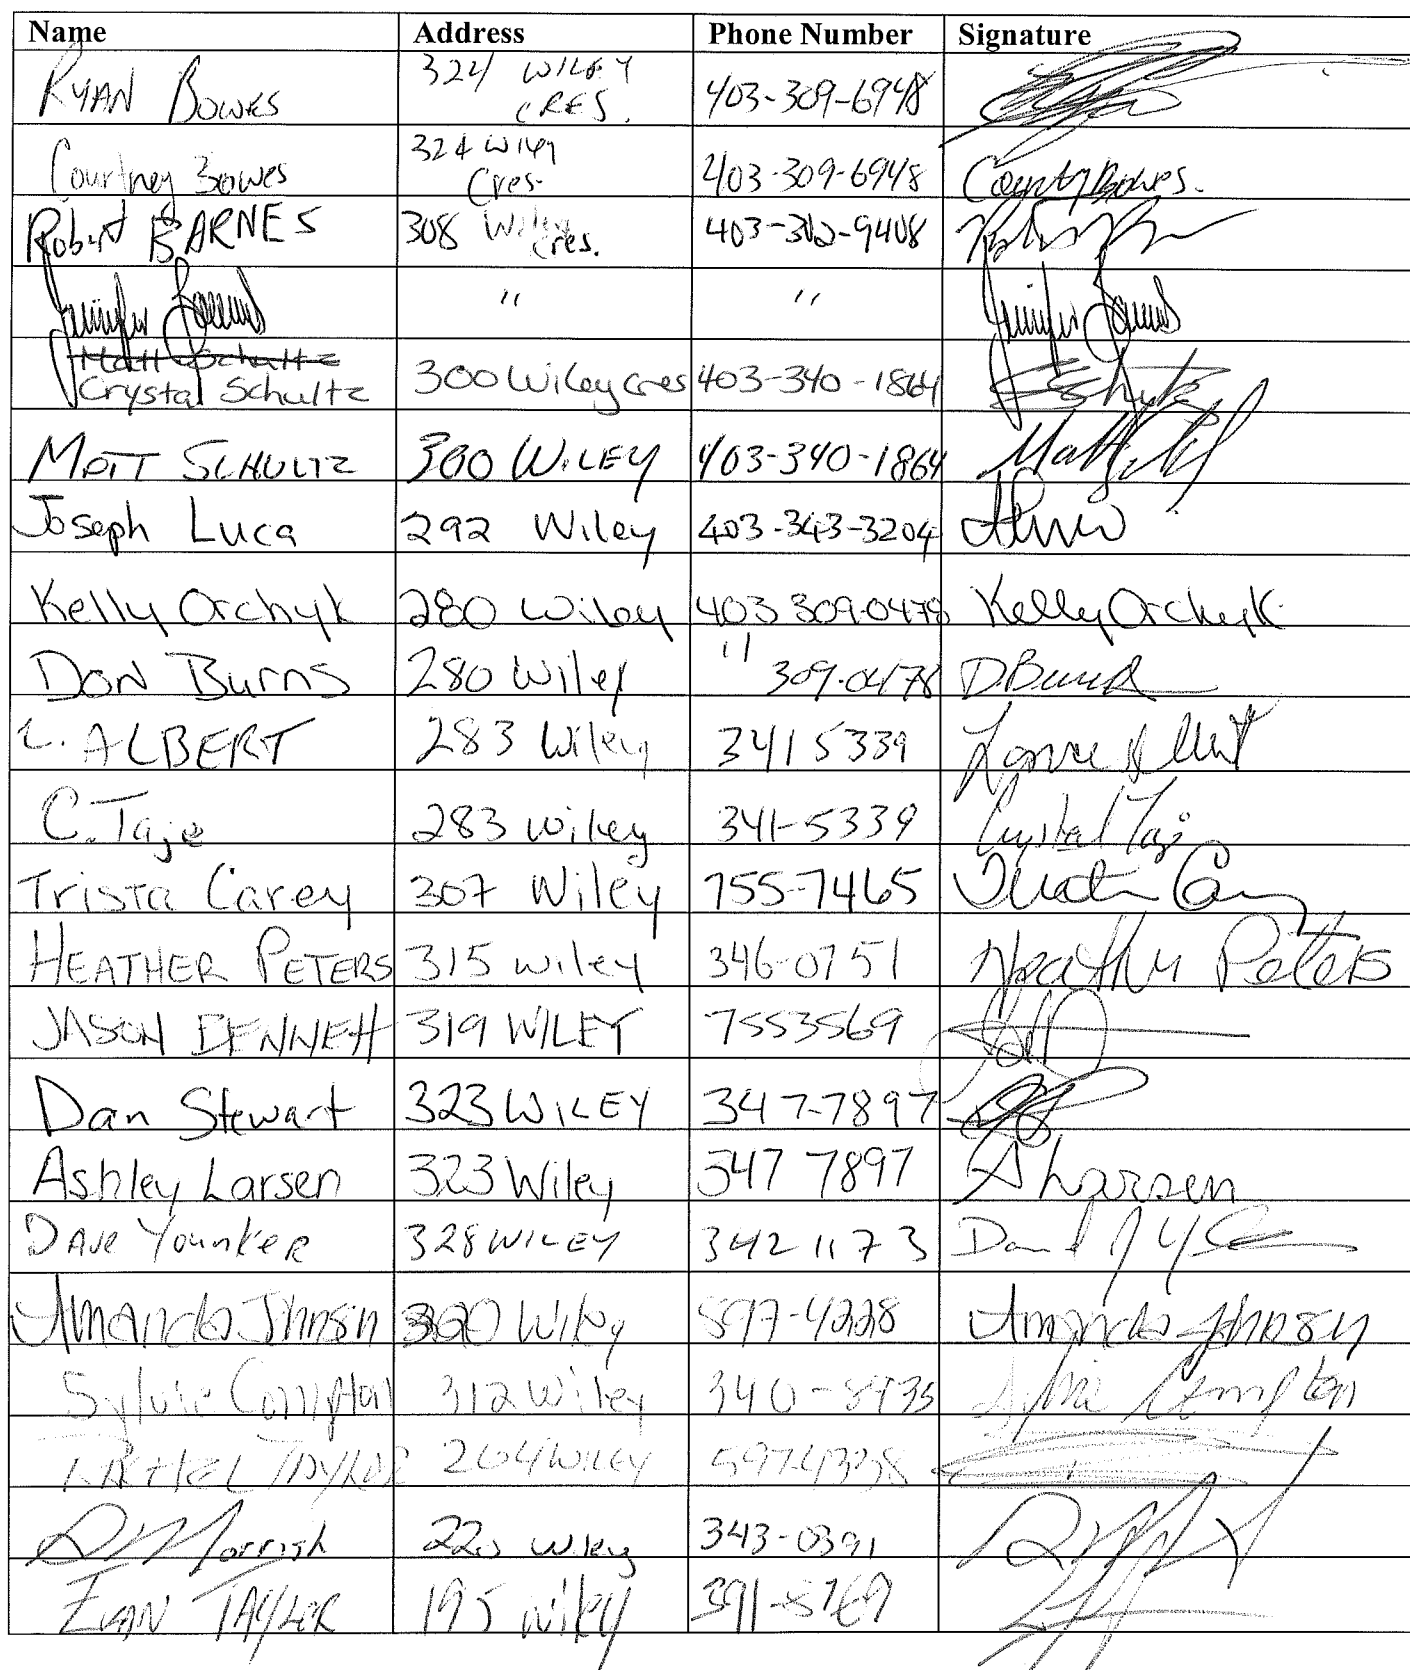 Name Address Phone Number Signature
RYAN BOWES 324 WILEY CRES. 403-309-6948
Courtney Bowes 324 Wiley Cres. 403-309-6948 Courtney Bowes.
Robert BARNES 308 Wiley Cres. 403-302-9408
Jennifer Barnes " " Jennifer Barnes
Matt Schultz
Crystal Schultz 300 Wiley cres 403-340-1864
MATT SCHULTZ 300 WILEY 403-340-1864
Joseph Luca 292 Wiley 403-343-3204
Kelly Orchyk 280 Wiley 403 309-0478 Kelly Orchyk
Don Burns 280 Wiley " 309-0478 D. Burns
L. ALBERT 283 Wiley 341 5339
C. Taje 283 Wiley 341-5339 Crystal Taje
Trista Carey 307 Wiley 755-7465
HEATHER PETERS 315 Wiley 346-0751 Heather Peters
JASON BENNETT 319 WILEY 7553569
Dan Stewart 323 WILEY 347-7897
Ashley Larsen 323 Wiley 347 7897 A Larsen
DAVE YOUNKER 328 WILEY 342 1173
Amanda Jhnsn 320 Wiley 597-4228 Amanda Johnson
Sylvie Compton 312 Wiley 340- Sylvie Compton
TAYLOR 204 WILEY
D Morrish Wiley 343-0391
EVAN TAYLER 195 Wiley 391-8769